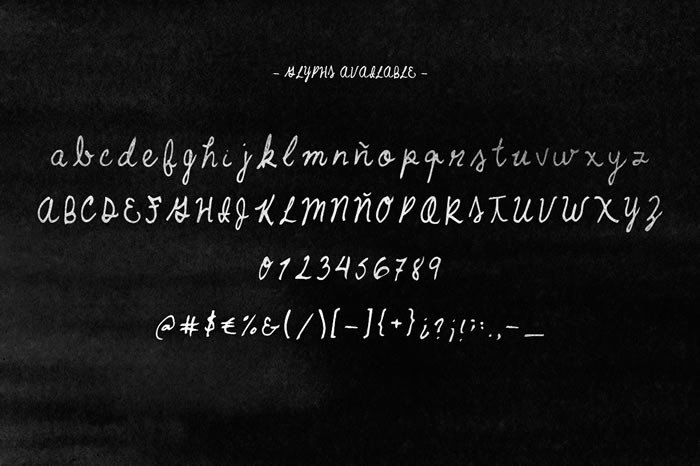 - GLYPHS AVAILABLE -
abcdefghijklmnñopqrstuvwxyz
ABCDEFGHIJKLMNÑOPQRSTUVWXYZ
0123456789
@#$€%&(/)[-]{+}¿?¡!;:.,-_